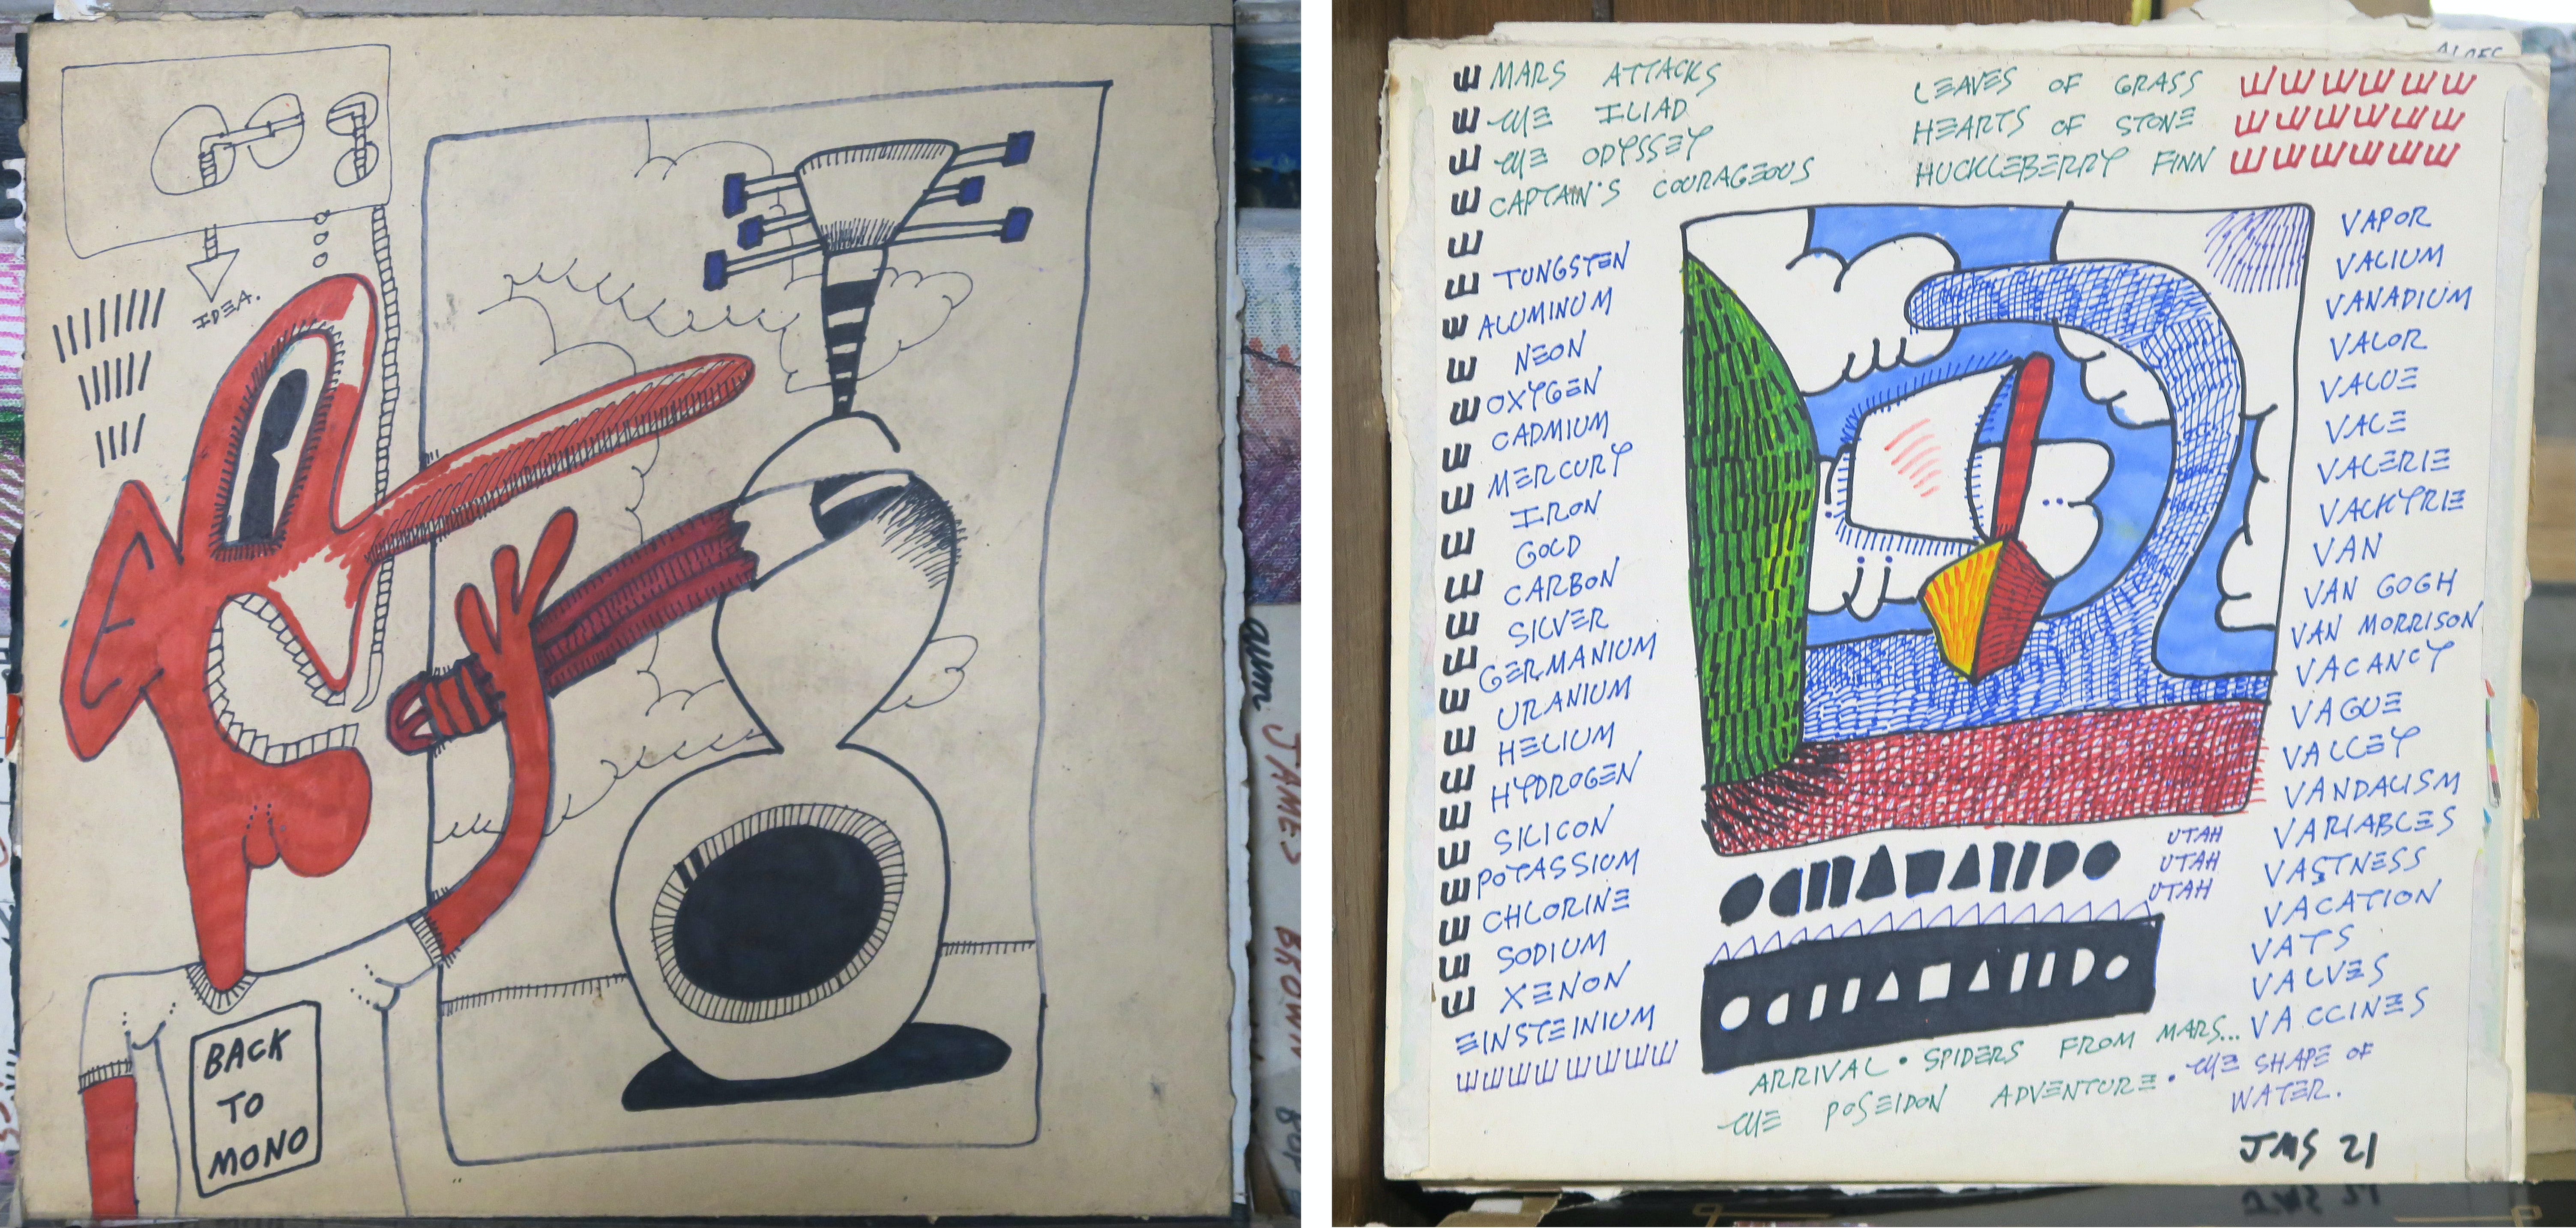 IDEA.
BACK
TO
MONO
JAMES BROWN POP
MARS ATTACKS
THE ILIAD
THE ODYSSEY
CAPTAIN'S COURAGEOUS
LEAVES OF GRASS
HEARTS OF STONE
HUCKLEBERRY FINN
TUNGSTEN
ALUMINUM
NEON
OXYGEN
CADMIUM
MERCURY
IRON
GOLD
CARBON
SILVER
GERMANIUM
URANIUM
HELIUM
HYDROGEN
SILICON
POTASSIUM
CHLORINE
SODIUM
XENON
EINSTEINIUM
VAPOR
VALIUM
VANADIUM
VALOR
VALUE
VALE
VALERIE
VALKYRIE
VAN
VAN GOGH
VAN MORRISON
VACANCY
VAGUE
VALLEY
VANDALISM
VARIABLES
VASTNESS
VACATION
VATS
VALVES
VACCINES
UTAH
UTAH
UTAH
ARRIVAL • SPIDERS FROM MARS...
THE POSEIDON ADVENTURE • THE SHAPE OF
WATER.
JMS 21